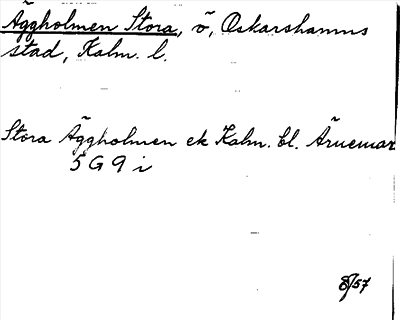 Äggholmen Stora, ö, Oskarshamns
stad, Kalm. l.
Stora Äggholmen ek Kalm. bl. Ärnemar
5 G 9 i
8/57